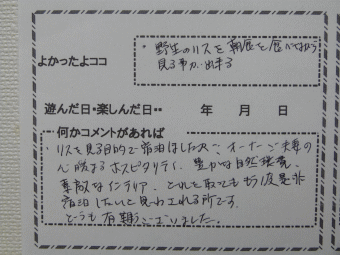 ・野生のリスを部屋と屋外から
よかったよココ
見る事が出来る
遊んだ日・楽しんだ日・・ 年 月 日
何かコメントがあれば
・リスを見る目的で宿泊しましたが、オーナーご夫妻の
心温まるホスピタリティ、豊かな自然環境、
素敵なインテリア、どれを取ってももう1度是非
宿泊したいと思わされる所です。
どうも有難うございました。